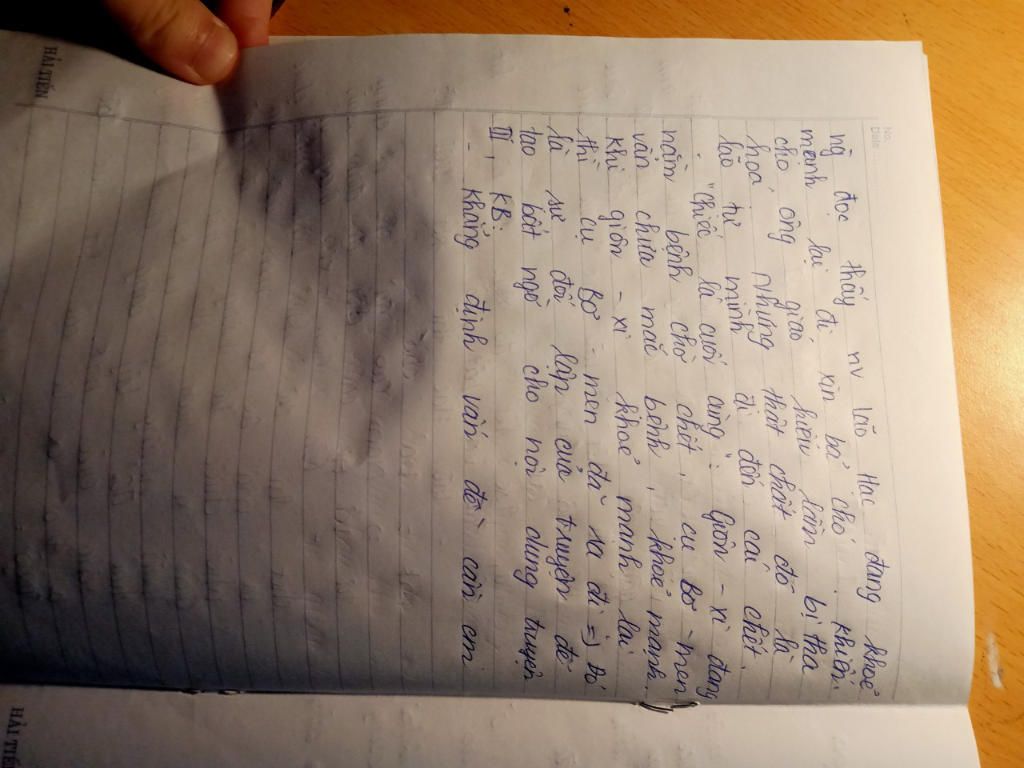 No.
Date
ng đọc thấy nv lão Hạc đang khoẻ
mạnh lại đi xin bả chó. khiến
cho ông giáo hiểu lầm bị tha
hoá nhưng thật chất đó là
lão tự mình đi đến cái chết.
. "Chiếc lá cuối cùng": Giôn - xi đang
nằm bệnh chờ chết, cụ Bơ - men
vẫn chưa mắc bệnh, khoẻ mạnh.
khi giôn - xi khoẻ mạnh lại
thì cụ Bơ - men đã ra đi => Đó
là sự đối lập của truyện để
tạo bất ngờ cho nội dung truyện
III, KB:
- khẳng định vấn đề cần cm
HẢI TIẾN
HẢI TIẾ